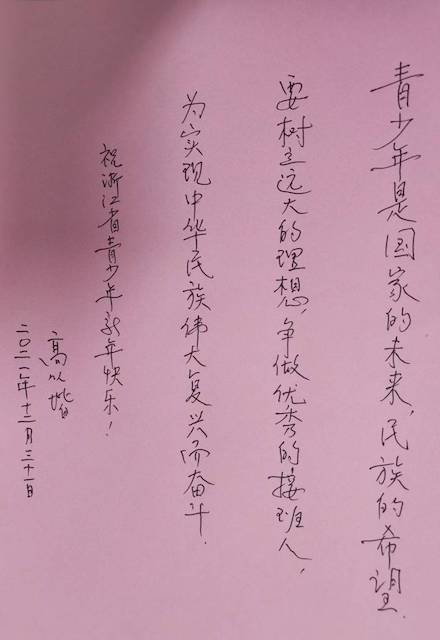 青少年是国家的未来，民族的希望.
要树立远大的理想，争做优秀的接班人，
为实现中华民族伟大复兴而奋斗.
祝浙江省青少年新年快乐！
高从堦
二〇二一年十二月三十一日